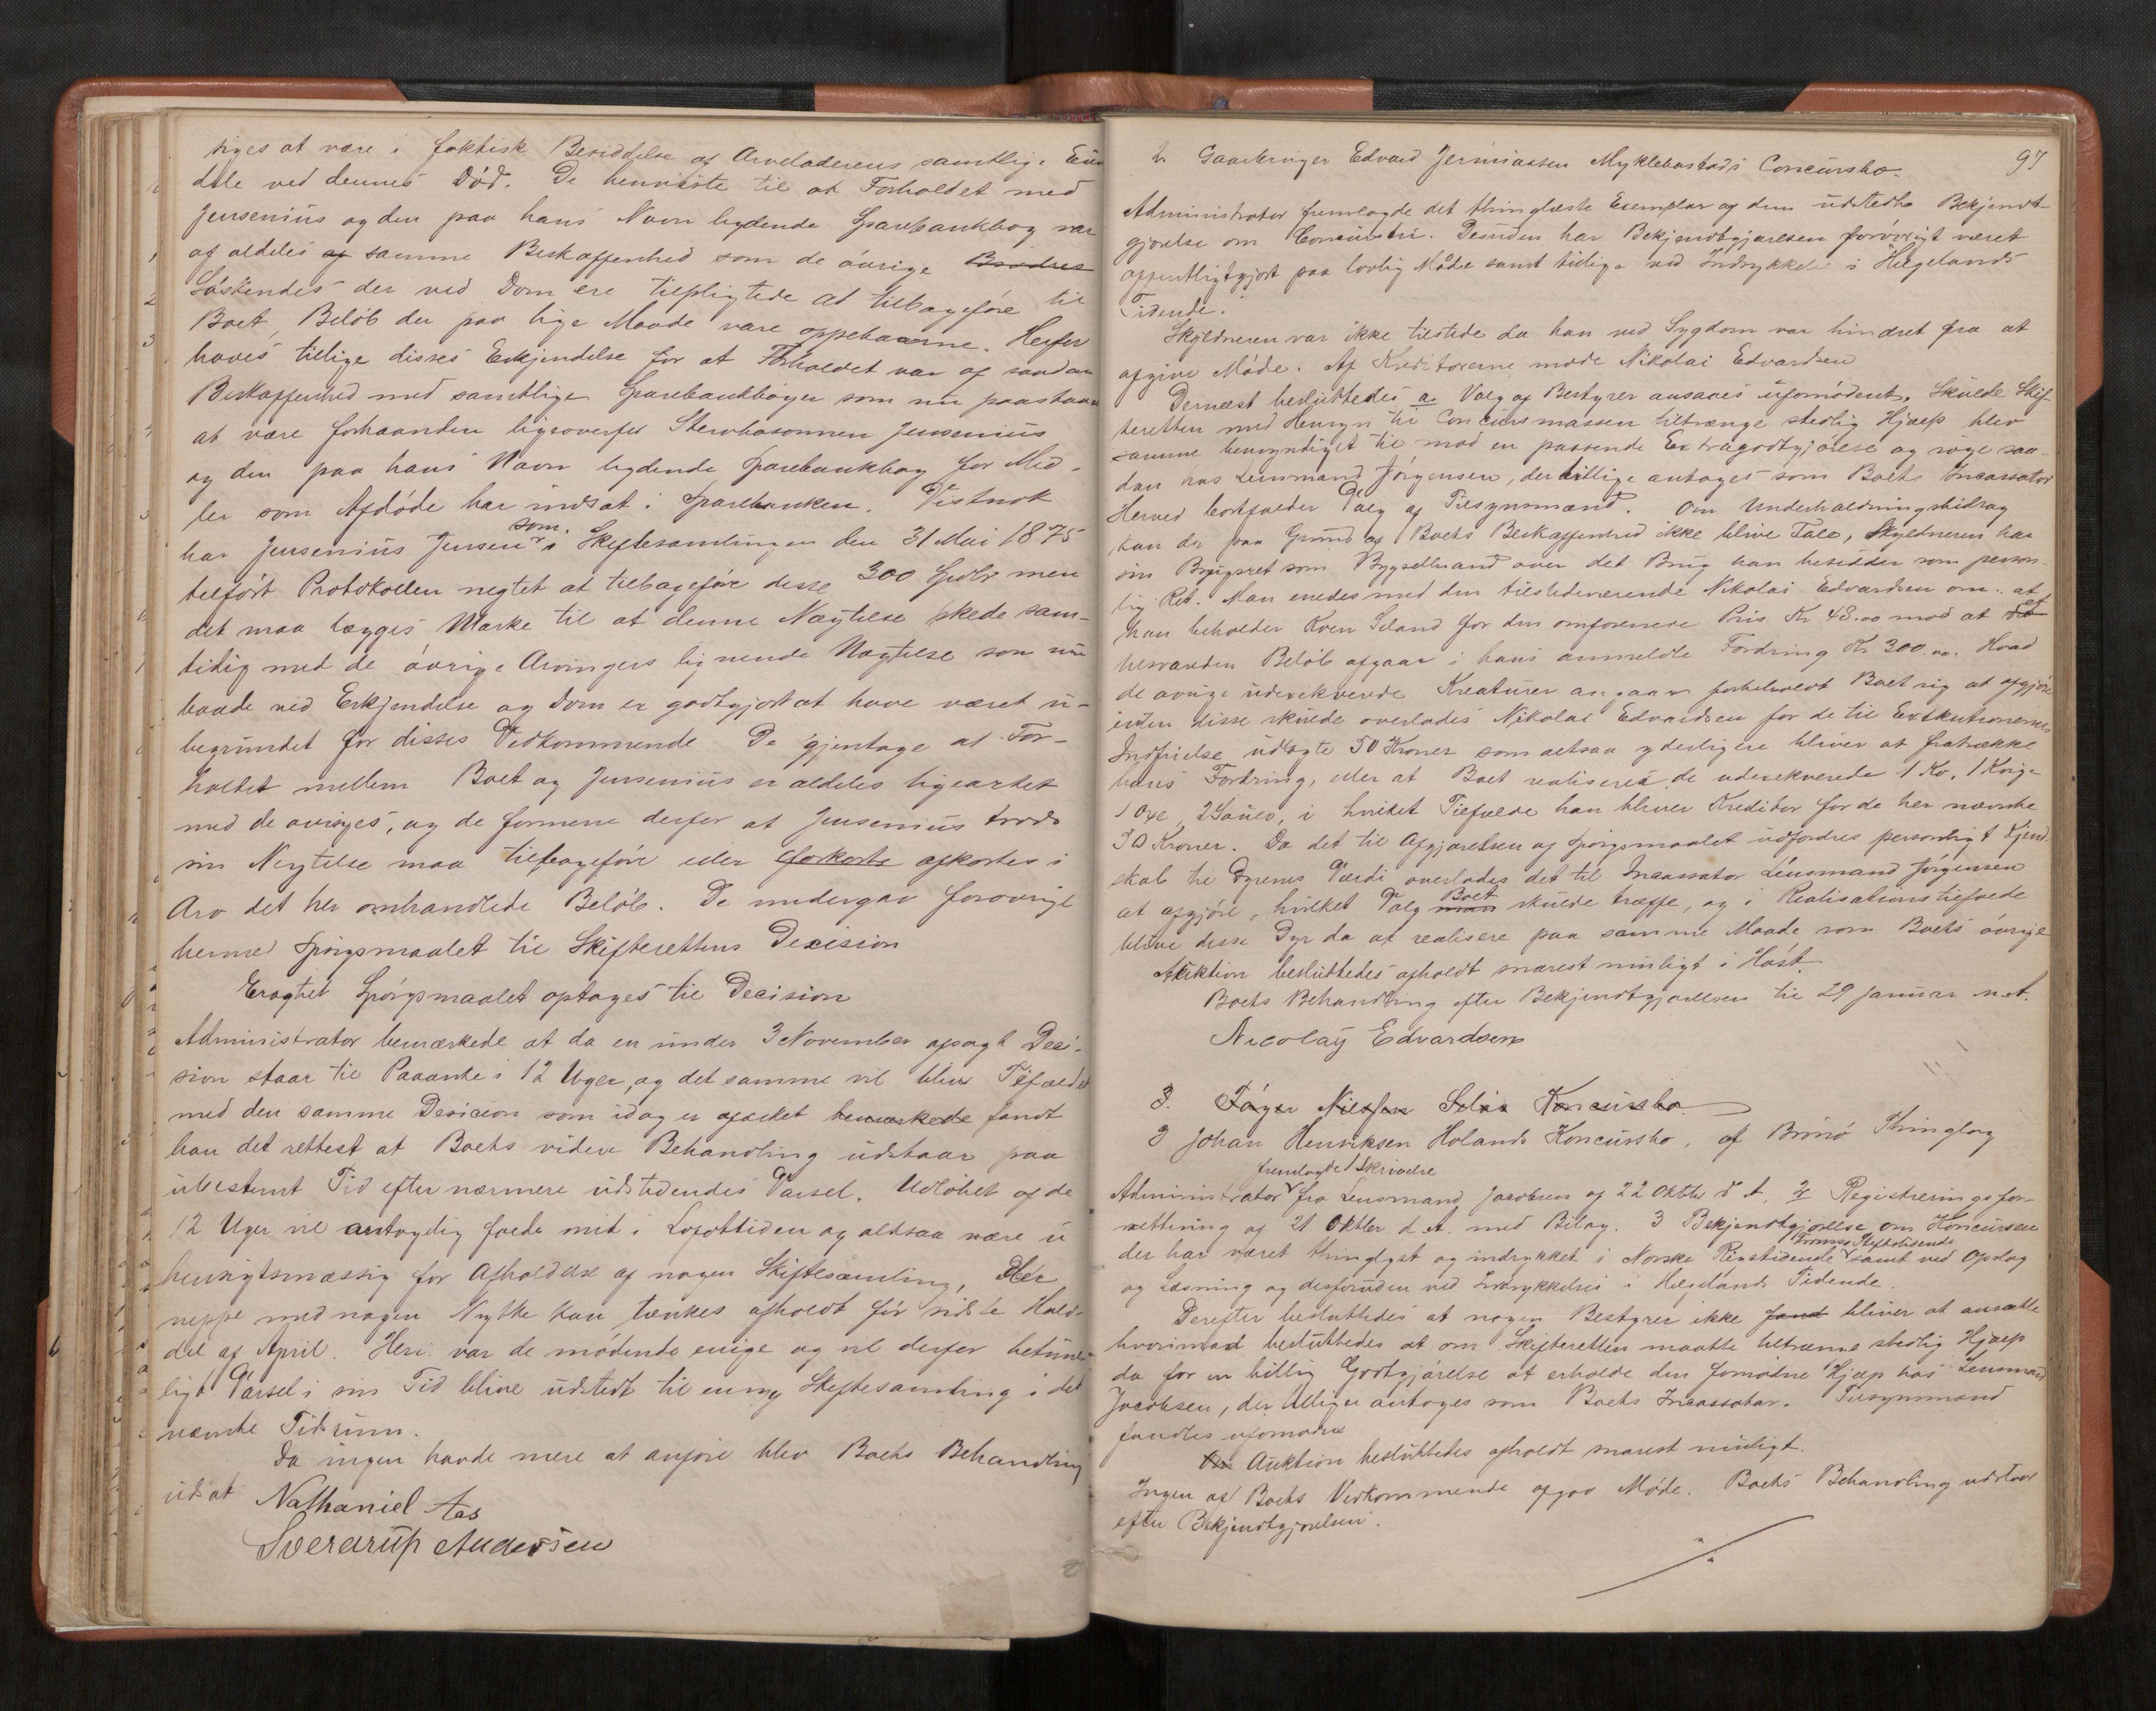 siges at være i faktisk Besiddelse af Arveladerens samtlige Eien
dele ved dennes Død. De henviste til at Forholdet med
Jensenius og den paa hans Navn lydende Sparebankbog var
af aldeles af samme Beskaffenhed som de øvrige Brødres
Søskendes der ved Dom ere tilpligtede at tilbageføre til
Boet, Beløb der paa lige Maade vare oppebaarne. Herfor
haves tillige disses Erkjendelse for at Forholdet var af saadan
Beskaffenhed med samtlige Sparebankbøger som nu paastaaes
at være forhaanden ligeoverfor Stervbosønnen Jensenius
og den paa hans Navn lydende Sparebankbog for Mid-
ler som Afdøde har indsat i Sparebanken. Vistnok
har Jensenius Jensen som i Skiftesamlingen den 31 Mai 1875
tilført Protokollen negtet at tilbageføre disse 300 Spdlr men
det maa lægges Mærke til at denne Nægtelse skede sam-
tidig med de øvrige Arvingers lignende Nægtelse som nu
baade ved Erkjendelse og Dom er godtgjort at have været u-
begrundet for disses Vedkommende. De gjentage at For-
holdet mellem Boet og Jensenius er aldeles ligeartet
med de øvriges, og de formene derfor at Jensenius trods
sin Negtelse maa tilbageføre eller forkorte afkortes i
Arv det her omhandlede Beløb. De undergav forøvrigt
hermed Spørgsmaalet til Skifterettens Decision
Eragtet Spørgsmaalet optages til Decision
Administrator bemærkede at da en under 3 November afsagt Deci-
sion staar til Paaanke i 12 Uger, og det samme vil blive Tilfældet
med den samme Desicion som idag er afæsket bemærkede fandt
han det rettest at Boets videre Behandling udstaar paa
ubestemt Tid efter nærmere udstedendes Varsel. Udløbet af de
12 Uger vil antagelig falde midt i Lofottiden og altsaa være u
hensigtsmæssig for Afholdelse af nogen Skiftesamling, der
neppe med nogen Nytte kan tænkes afholdt før sidste Halv-
del af April. Heri var de mødende enige og vil derfor betime-
ligt Varsel i sin Tid blive udstedt til en ny Skiftesamling i det
nævnte Tidsrum.
Da ingen havde mere at anføre blev Boets Behandling
udsat
Nathaniel Aas
Sverdrup Andersen
97
2. Gaardbruger Edvard Jermiassen Myklebostads Concursbo.
Administrator fremlagde det thinglæste Exemplar af den udstedte Bekjendt
gjørelse om Concursen. Desuden har Bekjendtgjørelsen forøvrigt været
offentligtgjort paa lovlig Måde samt tidlige ved Indrykkelse i Helgelands
Tidende.
Skyldneren var ikke tilstede da han ved Sygdom var hindret fra at
afgive Møde. Af Kreditorerne møde Nikolai Edvardsen
Dernæst besluttedes a. Valg af Bestyrer ansaaes ufornødent. Skulde Skif
teretten med Hensyn til Concursmassen tiltrænge stedlig Hjælp blev
samme bemyndiget til mod en passende Extragodtgjørelse og søge saa-
dan hos Lensmand Jørgensen, der tillige antages som Boets Incassator
Herved bortfalder Valg af Tilsynsmænd. Om Underholdningsbidrag
kan der paa Grund af Boets Beskaffenhed ikke blive Tale, Skyldneren har
sin Brugsret som Bygselmand over det Brug han besidder som person-
lig Ret. Man enedes med den tilstedeværende Nikolai Edvardsen om at
han beholder Koen Seland for den omforenede Pris Kr 48.00 mod at et
Beløb afgaar i hans anmeldte Fordring Kr 300.00. Hvad
de øvrige udexekverede Kreaturer angaar forbeholdt Boet sig at afgjøre
enten disse skulde overlades Nikolai Edvardsen for de til Exekutionernes
Indfrielse udlagte 50 Kroner som altsaa yderligere bliver at fratrække
hans Fordring, eller at Boet realiserer de udexekverede 1 Ko, 1 Kvige
1 Oxe, 2 Sauer, i hvilket Tilfælde han bliver Kreditor for de her nævnte
50 Kroner. Da det til Afgjørelsen af Spørgsmaalet udfordres personligt Kjend
skab til Dyrenes Værdi overlades det til Incassator Lensmand Jørgensen
at afgjøre, hvilket Valg man Boet skulde træffe, og i Realisationstilfælde
blive disse Dyr da at realisere paa samme Maade som Boets øvrige
Auktion besluttedes afholdt snarest muligt i Høst.
Boets Behandling efter Bekjendtgjørelsen til 29 Januar n.A.
Nicolay Edvardsen
3. Koncursbo
3 Johan Henriksen Holands Koncursbo, af Brønø Thinglag
Administrator fremlagde 1 Skrivelse fra Lensmand Jacobsen af 22 Oktbr d. A, 2 Registreringsfor-
retning af 21 Oktbr d.A. med Bilag. 3 Bekjendtgjørelse om Koncursen
der har været thinglyst og indrykket i Norske Rigstidende Tromsø Stiftstidende samt ved Opslag
og Læsning og desforuden ved Indrykkelse i Helgelands Tidende.
Derefter besluttedes at nogen Bestyrer ikke fand bliver at ansætte
hvorimod besluttedes at om Skifteretten maatte tiltrænge stedlig Hjælp
da for en billig Godtgjørelse at erholde den fornødne Hjælp hos Lensmand
Jacobsen, der tillige antages som Boets Incassator. Tilsynsmænd
fandtes ufornødne
Auktion besluttedes afholdt snarest muligt.
Ingen af Boets Vedkommende afgav Møde. Boets Behandling udstaar
efter Bekjendtgjørelsen.